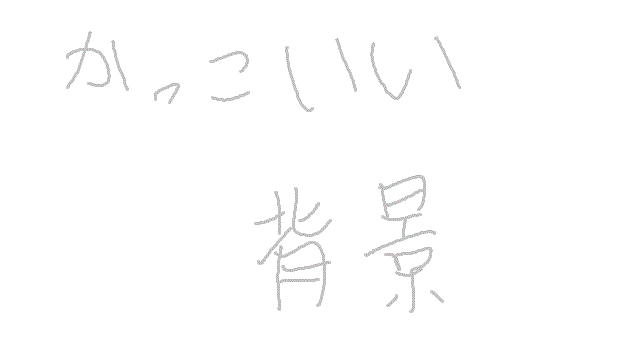 かっこいい
背景